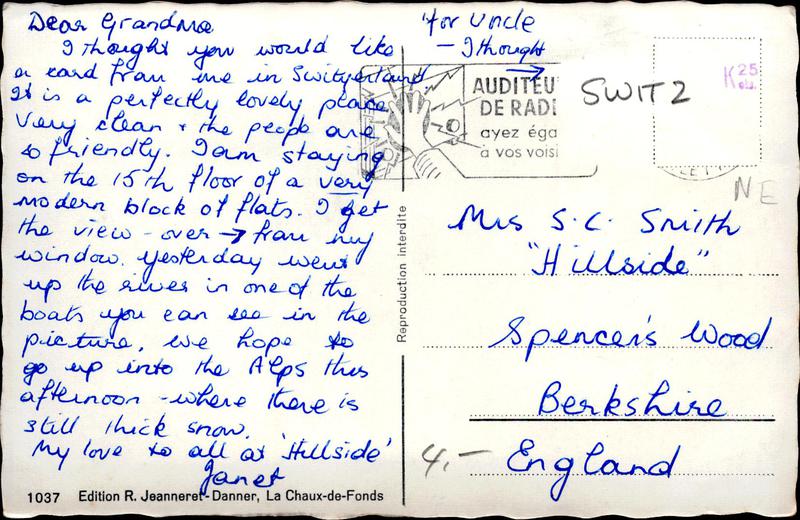 Dear Grandma
I thought you would like
a card from me in Switzerland
It is a perfectly lovely place
very clean + the people are
so friendly. I am staying
on the 15th floor of a very
modern block of flats. I get
the view - over → from my
window. Yesterday went
up the river in one of the
boats you can see in the
picture. We hope to
go up into the Alps this
afternoon - where there is
still thick snow.
My love to all at 'Hillside'
Janet
1037 Edition R. Jeanneret-Danner, La Chaux-de-Fonds
Reproduction interdite
'for Uncle
- I thought
→
AUDITEU
DE RADI
ayez éga
à vos voisi
SWITZ
K 25
NE
Mrs S.C. Smith
"Hillside"
Spencer's Wood
Berkshire
England
4,-